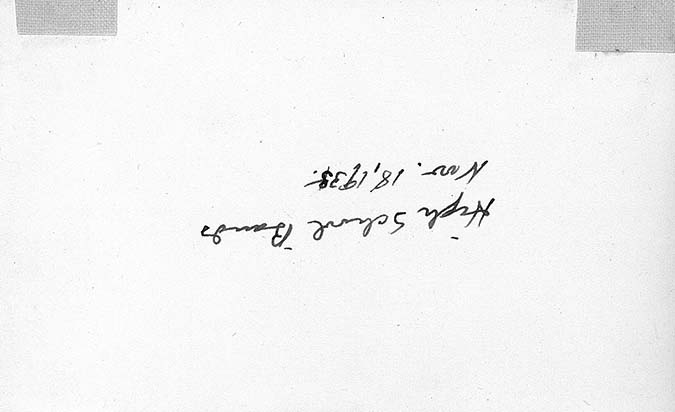 High School Bands
Nov. 18, 1935